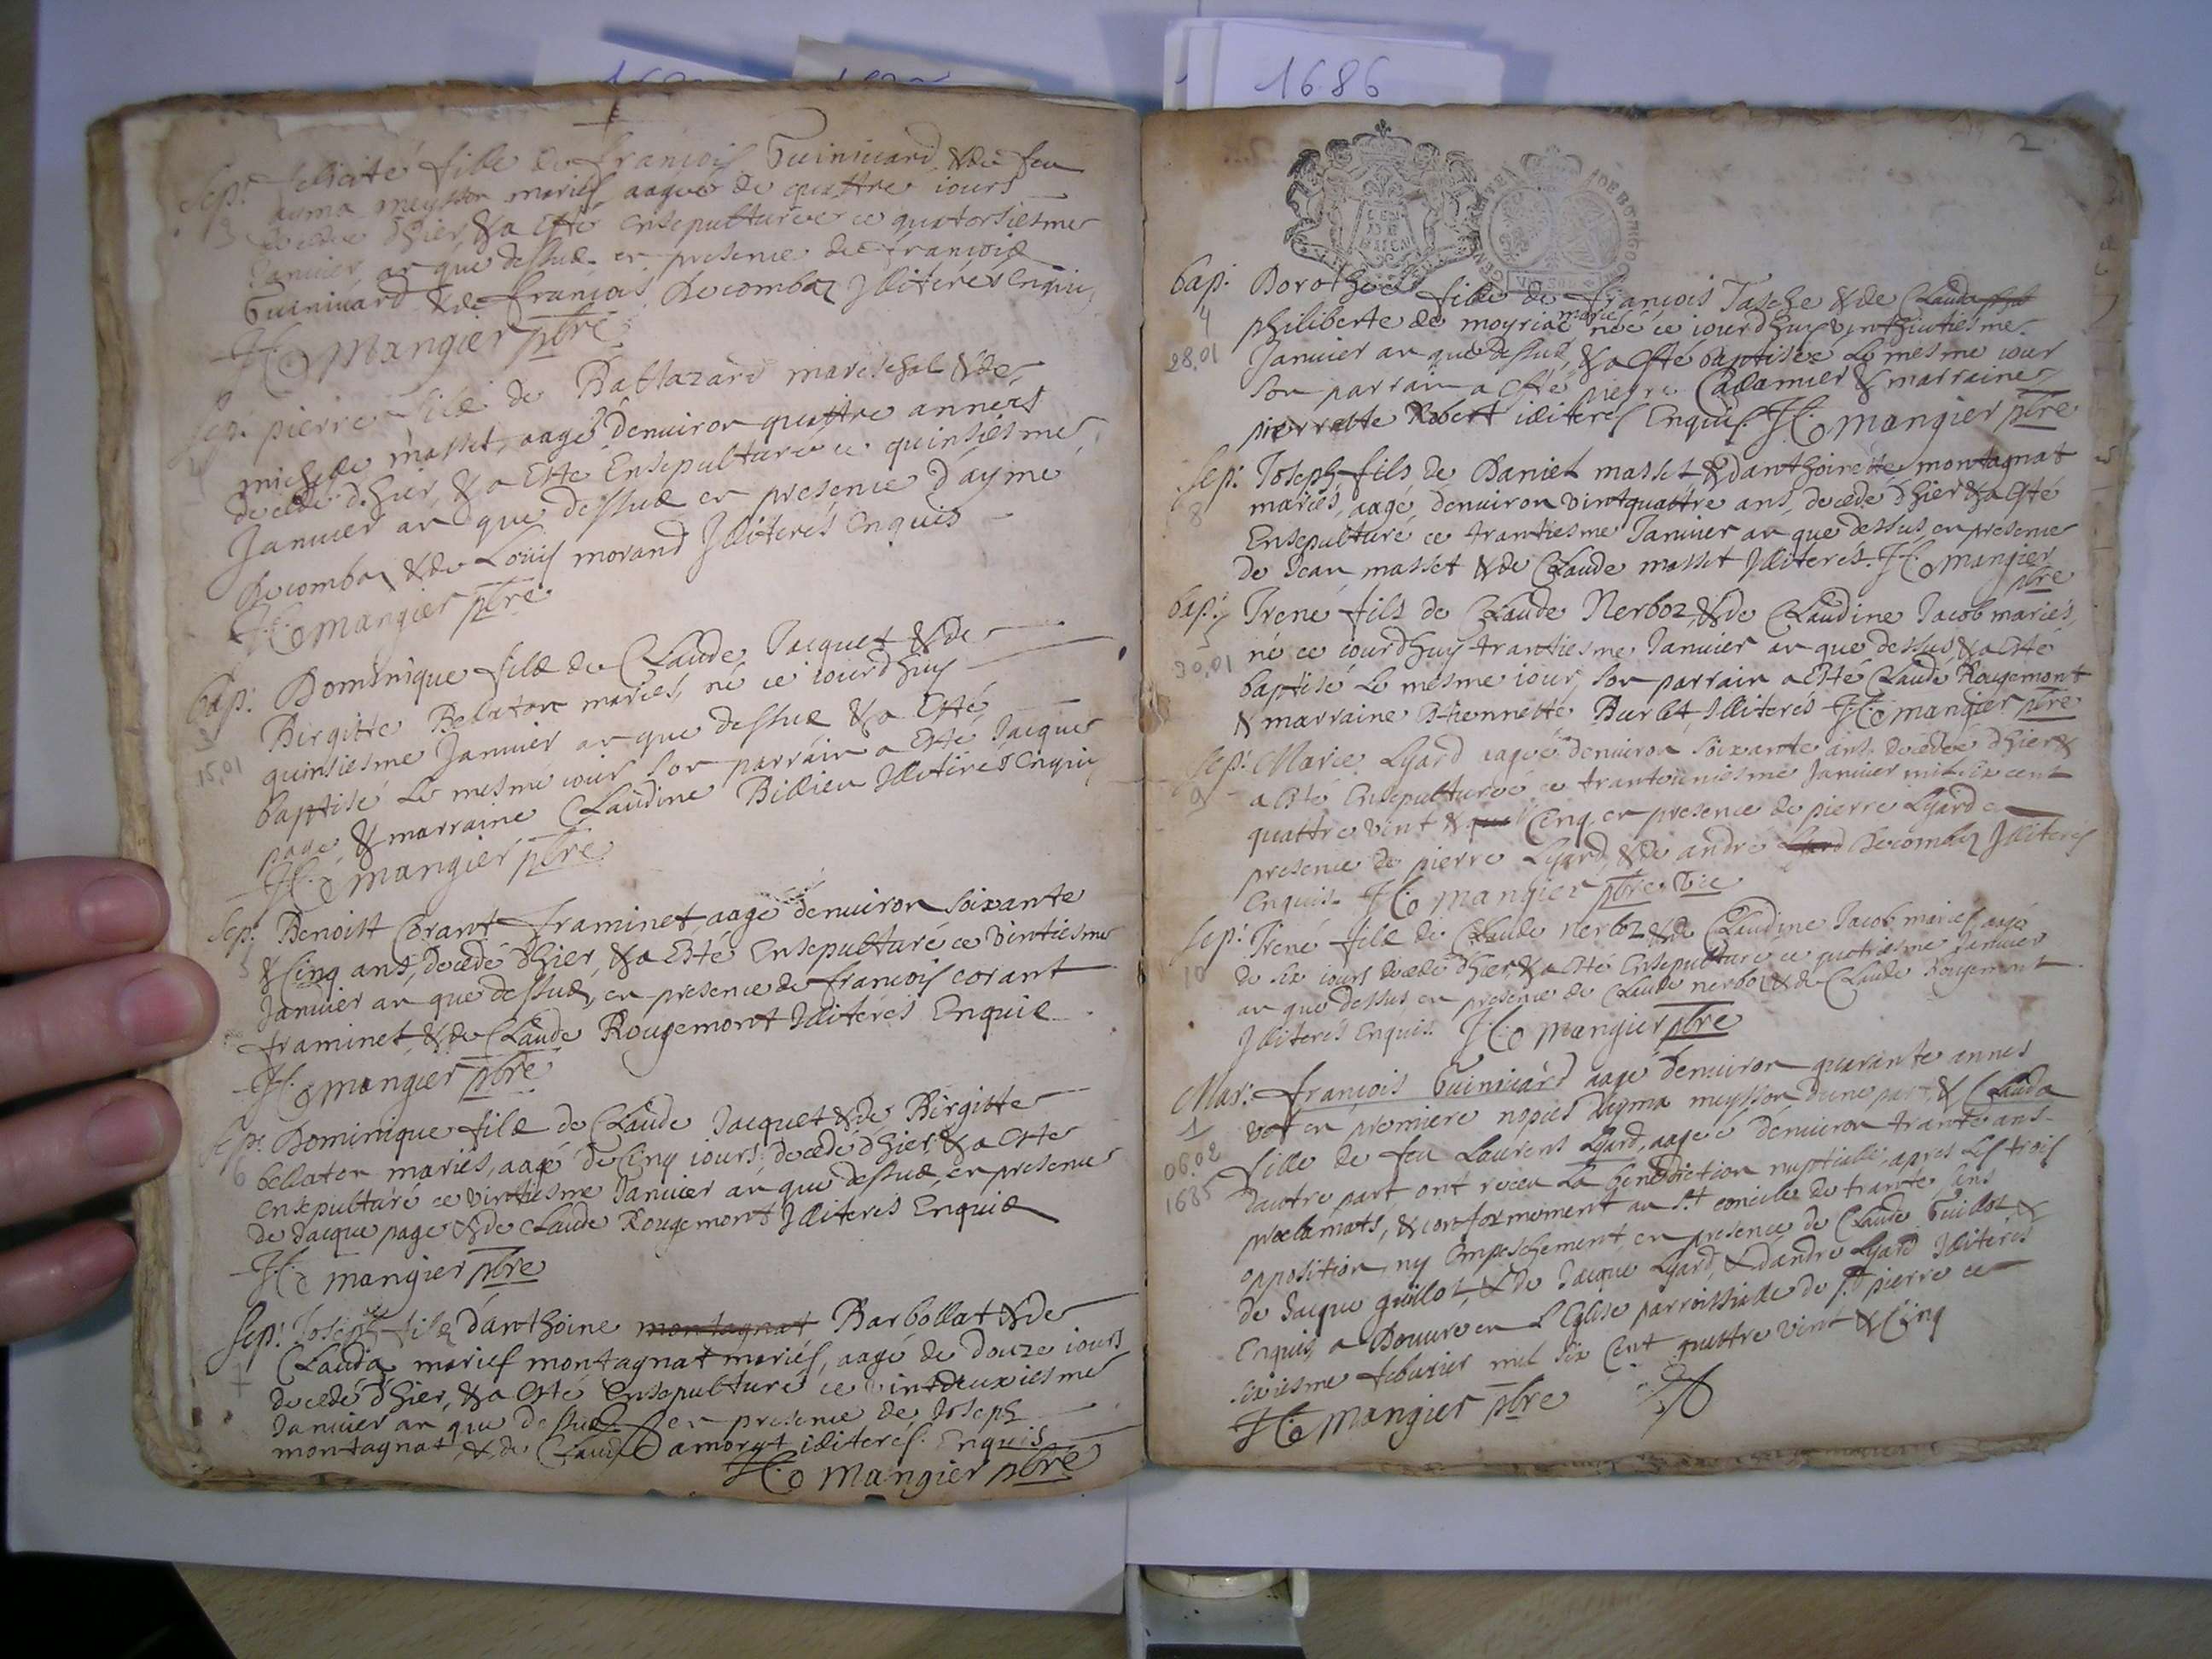 1686
Sep: felicité fille de françois Guinivard, & de feu
ayma meysson mariés, aagée de quattre iours
decedée d'hier, & a esté ensepulturée ce quatorsiesme
Januier an que dessus en presence de françois
Guinivard & de françois Decombaz Illiterés enquis
3
mangier pbre
Sep: pierre fils de Baltazard mareschal & de
michele masset, aagé denuiron quattre années
decedé d'hier, & a esté Ensepulturé ce quinsiesme
Januier an que dessus en presence d'aymé
Decombaz & de Louis morand Illiterés Enquis
mangier pbre
bap: Dominique fils de Claude Jacquet & de
Birgitte Bellaton mariés, né ce iourdhuy
3
quinsiesme Januier an que dessus & a esté
15,01
baptisé le mesme iour son parrain a esté Jacque
page & marraine Claudine Billieu Illiterés Enquis
mangier pbre
Sep: Benoist Corant framinet, aagé denuiron soixante
5
& Cinq ans, decedé d'hier, & a esté Ensepulturé ce vintiesme
Januier an que dessus, en presence de françois corant
framinet & de Claude Rougemont Illiterés Enquis
mangier pbre
Sep: Dominique fils de Claude Jacquet & de Birgitte
6
bellaton mariés, aagé de Cinq iours decedé d'hier, & a esté
ensepulturé ce vintiesme Januier an que dessus, en presence
de Jacque page & de Claude Rougemont Illiterés Enquis
mangier pbre
Sep: Joseph fils d'anthoine montagnat Barbollat & de
7
Clauda mariés montagnat mariés, aagé de douze iours
decedé d'hier, & a esté ensepulturé ce vintdeuxiesme
Januier an que dessus en presence de Joseph
montagnat & de Claude amorat illiterés Enquis
mangier pbre
2
bap: Dorothee fille de françois Tasche & de Clauda
4
philiberte de moyriac mariés née ce iourdhuy vinthuitiesme
28,01
Januier an que dessus, & a esté baptisée le mesme iour
son parrain a esté pierre Caldamier & marraine
pierrette Robert illiterés Enquis. mangier pbre
Sep: Joseph fils de Daniel masset & danthoinette montagnat
8
mariés, aagé denuiron vintquattre ans, decedé d'hier & a esté
Ensepulturé ce trantiesme Januier an que dessus en presence
de Jean masset & de Claude masset Illiterés. mangier
pbre
bap: Irené fils de Claude Nerboz, & de Claudine Jacob mariés,
5
né ce iourdhuy trantiesme Januier an que dessus & a esté
30,01
baptisé le mesme iour, son parrain a esté Claude Rougemont
& marraine Estiennette Burlet, Illiterés mangier pbre
Sep: Marie Lyard aagée denuiron soixante ans decedée d'hier &
9
a esté Ensepulturée ce trantouniesme Januier mil six cent
quattre vint & Cinq, en presence de pierre Lyard
presence de pierre Lyard, & de andré Lyard Decombaz Illiterés
Enquis. mangier pbre vic
Sep: Irené fils de Claude nerboz & de Claudine Jacob mariés, aagé
10
de six iours decedé d'hier, & a esté Ensepulturé ce quatriesme Januier
an que dessus en presence de Claude nerboz & de Claude Rougemont
Illiterés Enquis. mangier pbre
Mar: françois Guinivard aagé denuiron quarante annés
1
vef en premiere nopces d'ayma meysson dune part, & Clauda
06,02
fille de feu Laurens Lyard, aagée denuiron trante ans
1685
dautre part ont receu la benediction nuptialle, apres les trois
proclamats, & conformement au st concile de trante sans
opposition, ny Empeschement, en presence de Claude Guillot &
de Jacque guillot, & de Jacque Lyard, & dandré Lyard Illiterés
Enquis, a Douure en L'Eglise parroissialle de st pierre ce
sixiesme feburier mil six Cent quattre vint & Cinq
mangier pbre